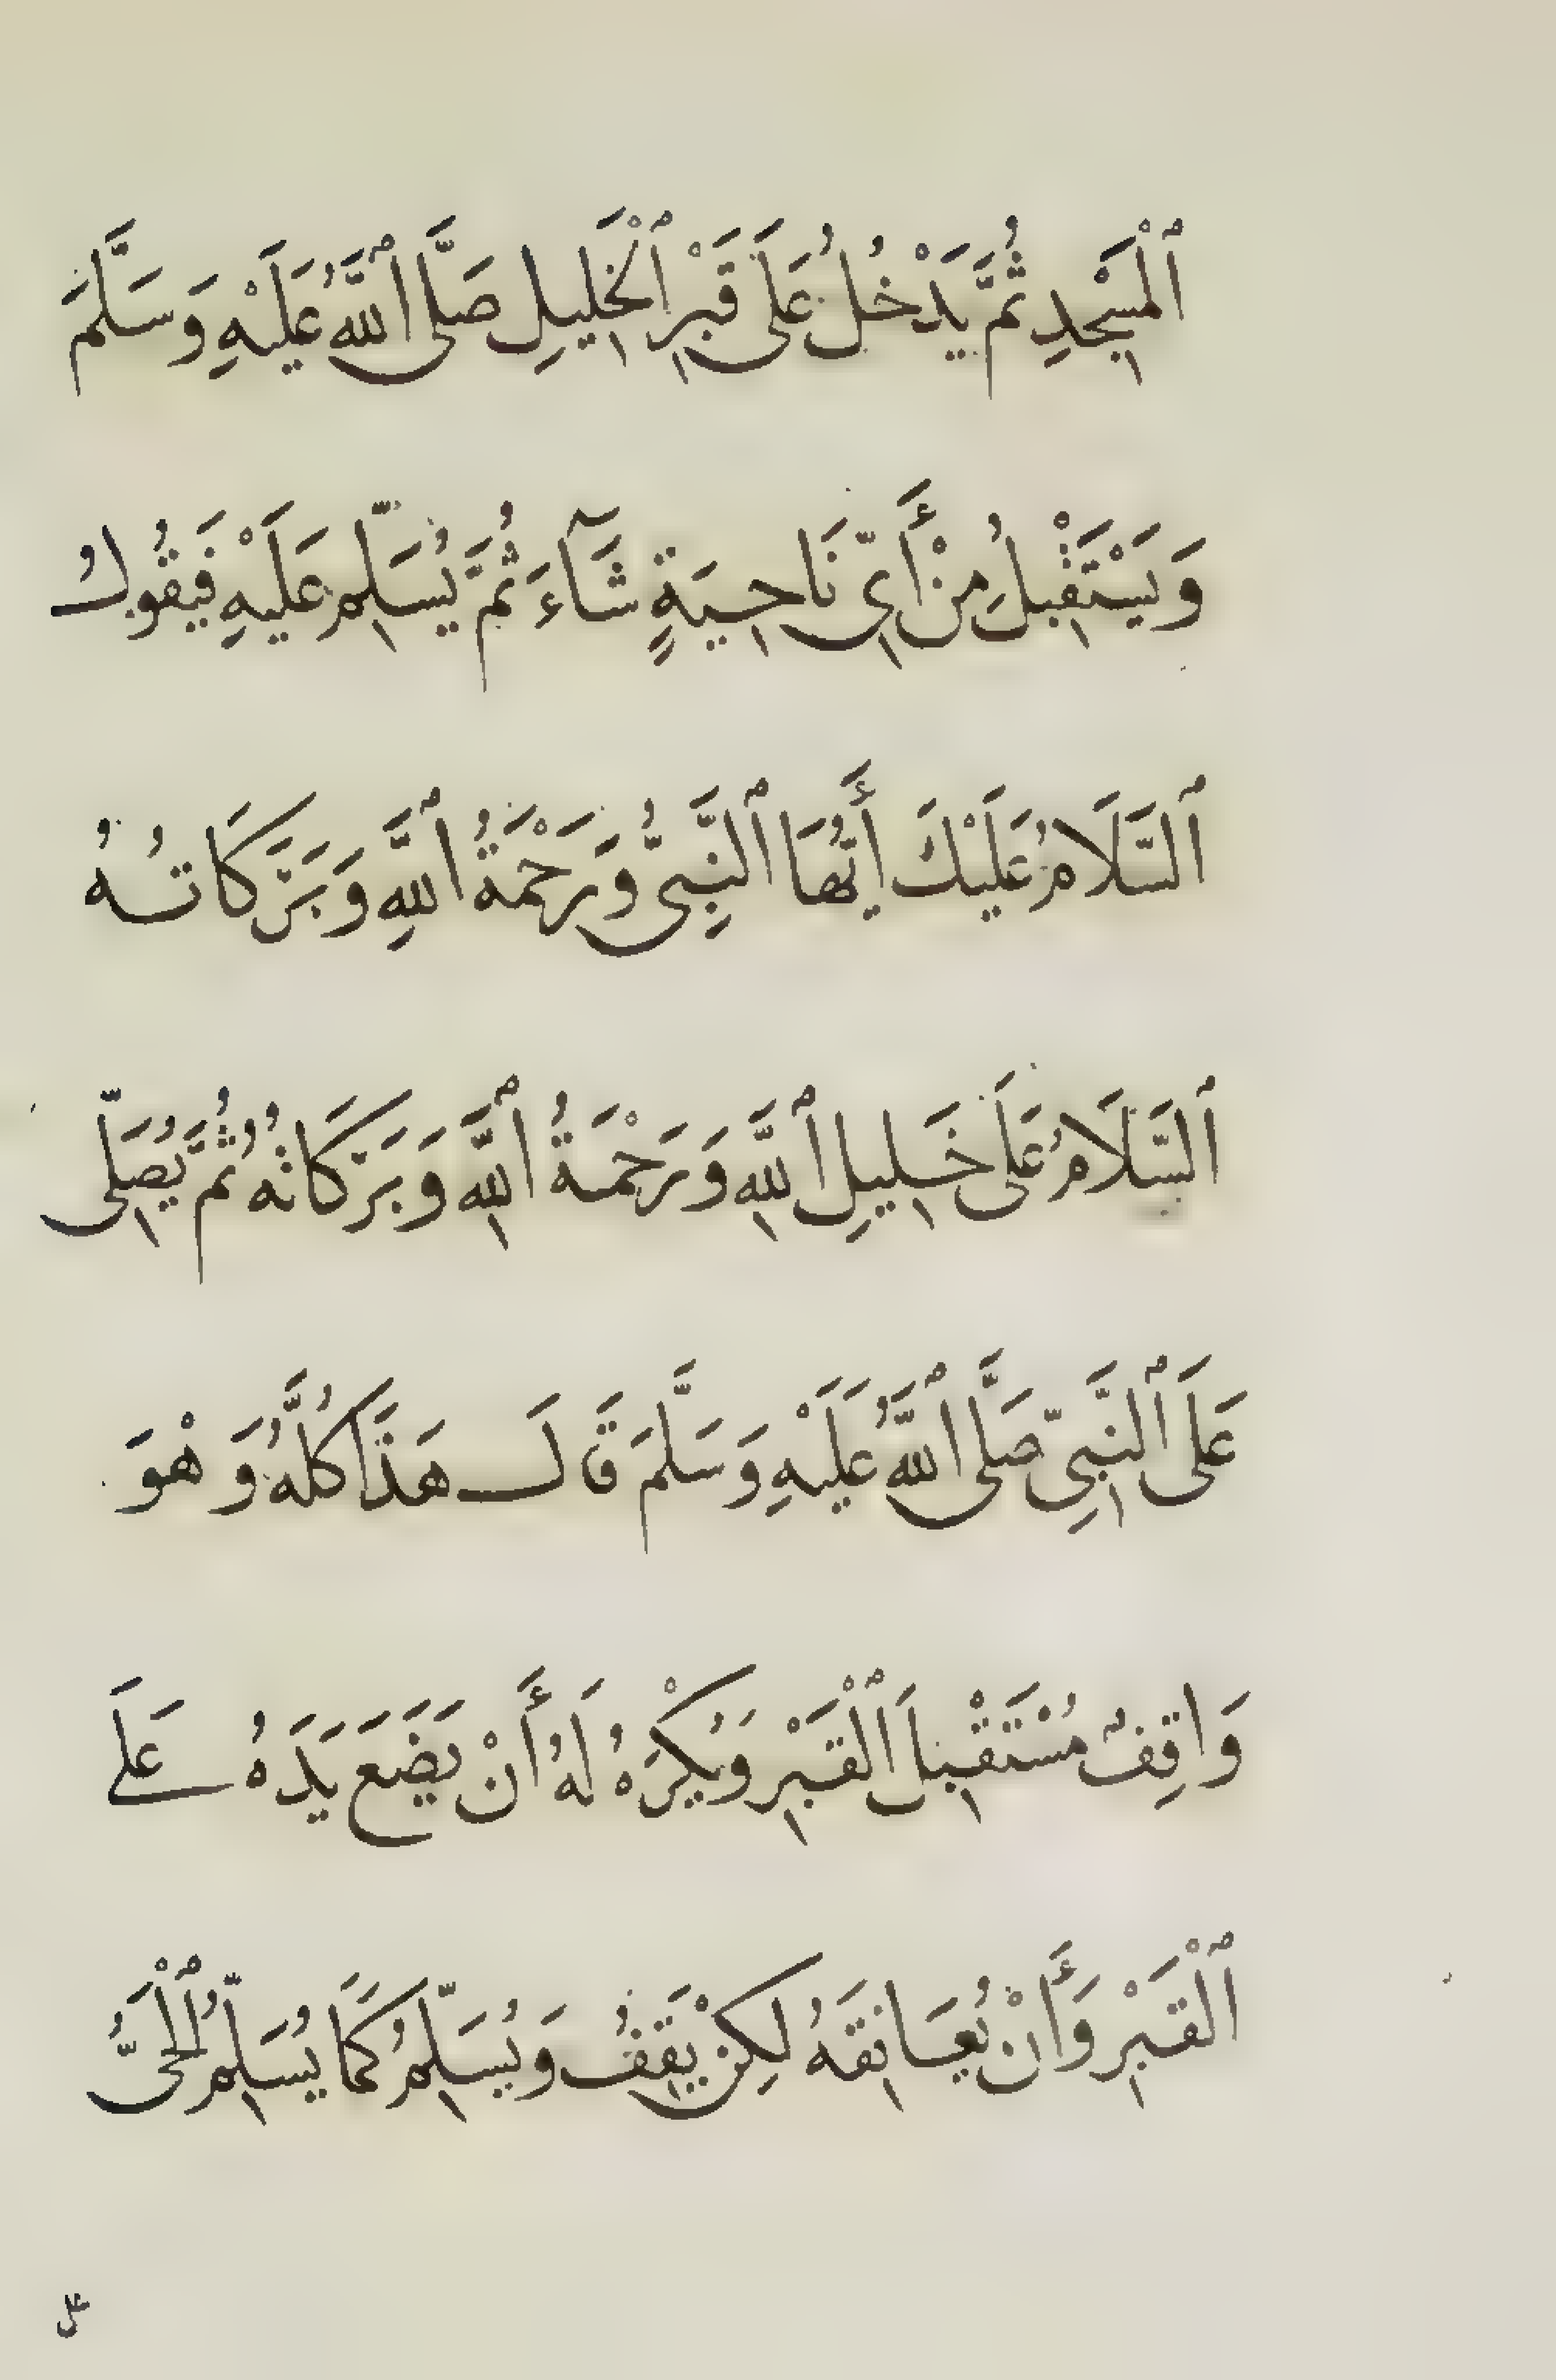 ٱلْمَسْجِدِ ثُمَّ يَدْخُلُ عَلَى قَبْرِ ٱلْخَلِيلِ صَلَّى ٱللَّهُ عَلَيْهِ وَسَلَّمَ
وَيَسْتَقْبِلُ مِنْ أَيِّ نَاحِيَةٍ شَآءَ ثُمَّ يُسَلِّم عَلَيْهِ فَيَقُولُ
ٱلسَّلَامُ عَلَيْكَ أَيُّهَا ٱلنَّبِيُّ وَرَحْمَةُ ٱللَّهِ وَبَرَكَاتُهُ
ٱلسَّلَامُ عَلَى خَلِيلِ ٱللَّهِ وَرَحْمَةُ ٱللَّهِ وَبَرَكَاتُهُ ثُمَّ يُصَلِّى
عَلَى ٱلنَّبِيِّ صَلَّى ٱللَّهُ عَلَيْهِ وَسَلَّمَ قَالَ هَذَا كُلُّهُ وَهْوَ
وَاقِفٌ مُسْتَقْبِلَ ٱلْقَبْرِ وَيُكْرَهُ لَهُ أَنْ يَضَعَ يَدَهُ عَلَى
ٱلْقَبْرِ وَأَنْ يُعَانِقَهُ لَكِنْ يَقِفُ وَيُسَلِّمُ كَمَا يُسَلِّمُ ٱلْحَىُّ